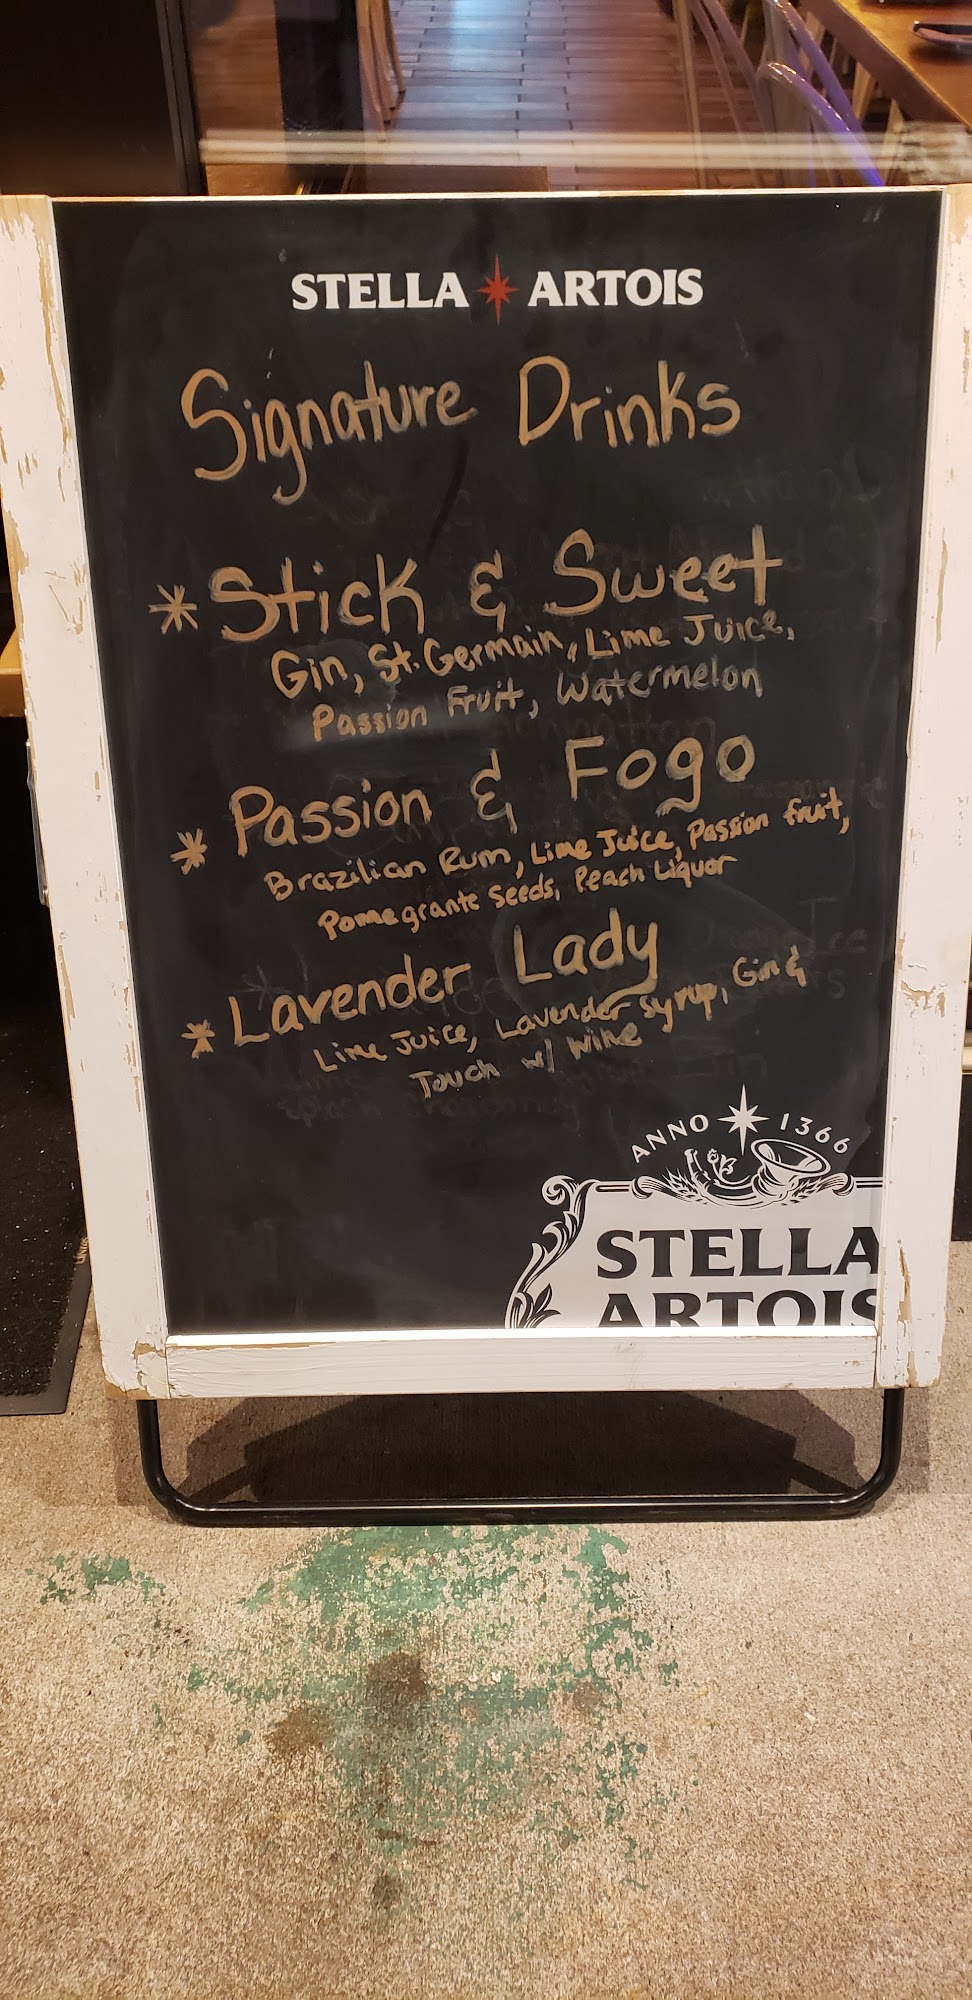 STELLA ARTOIS
Signature Drinks
* Stick & Sweet
Gin, St. Germain, Lime Juice,
Passion Fruit, Watermelon
* Passion & Fogo
Brazilian Rum, Lime Juice, Passion fruit,
Pomegrante Seeds, Peach Liquor
* Lavender Lady
Lime Juice, Lavender syrup, Gin &
Touch w/ Wine
ANNO 1366
STELLA
ARTOIS